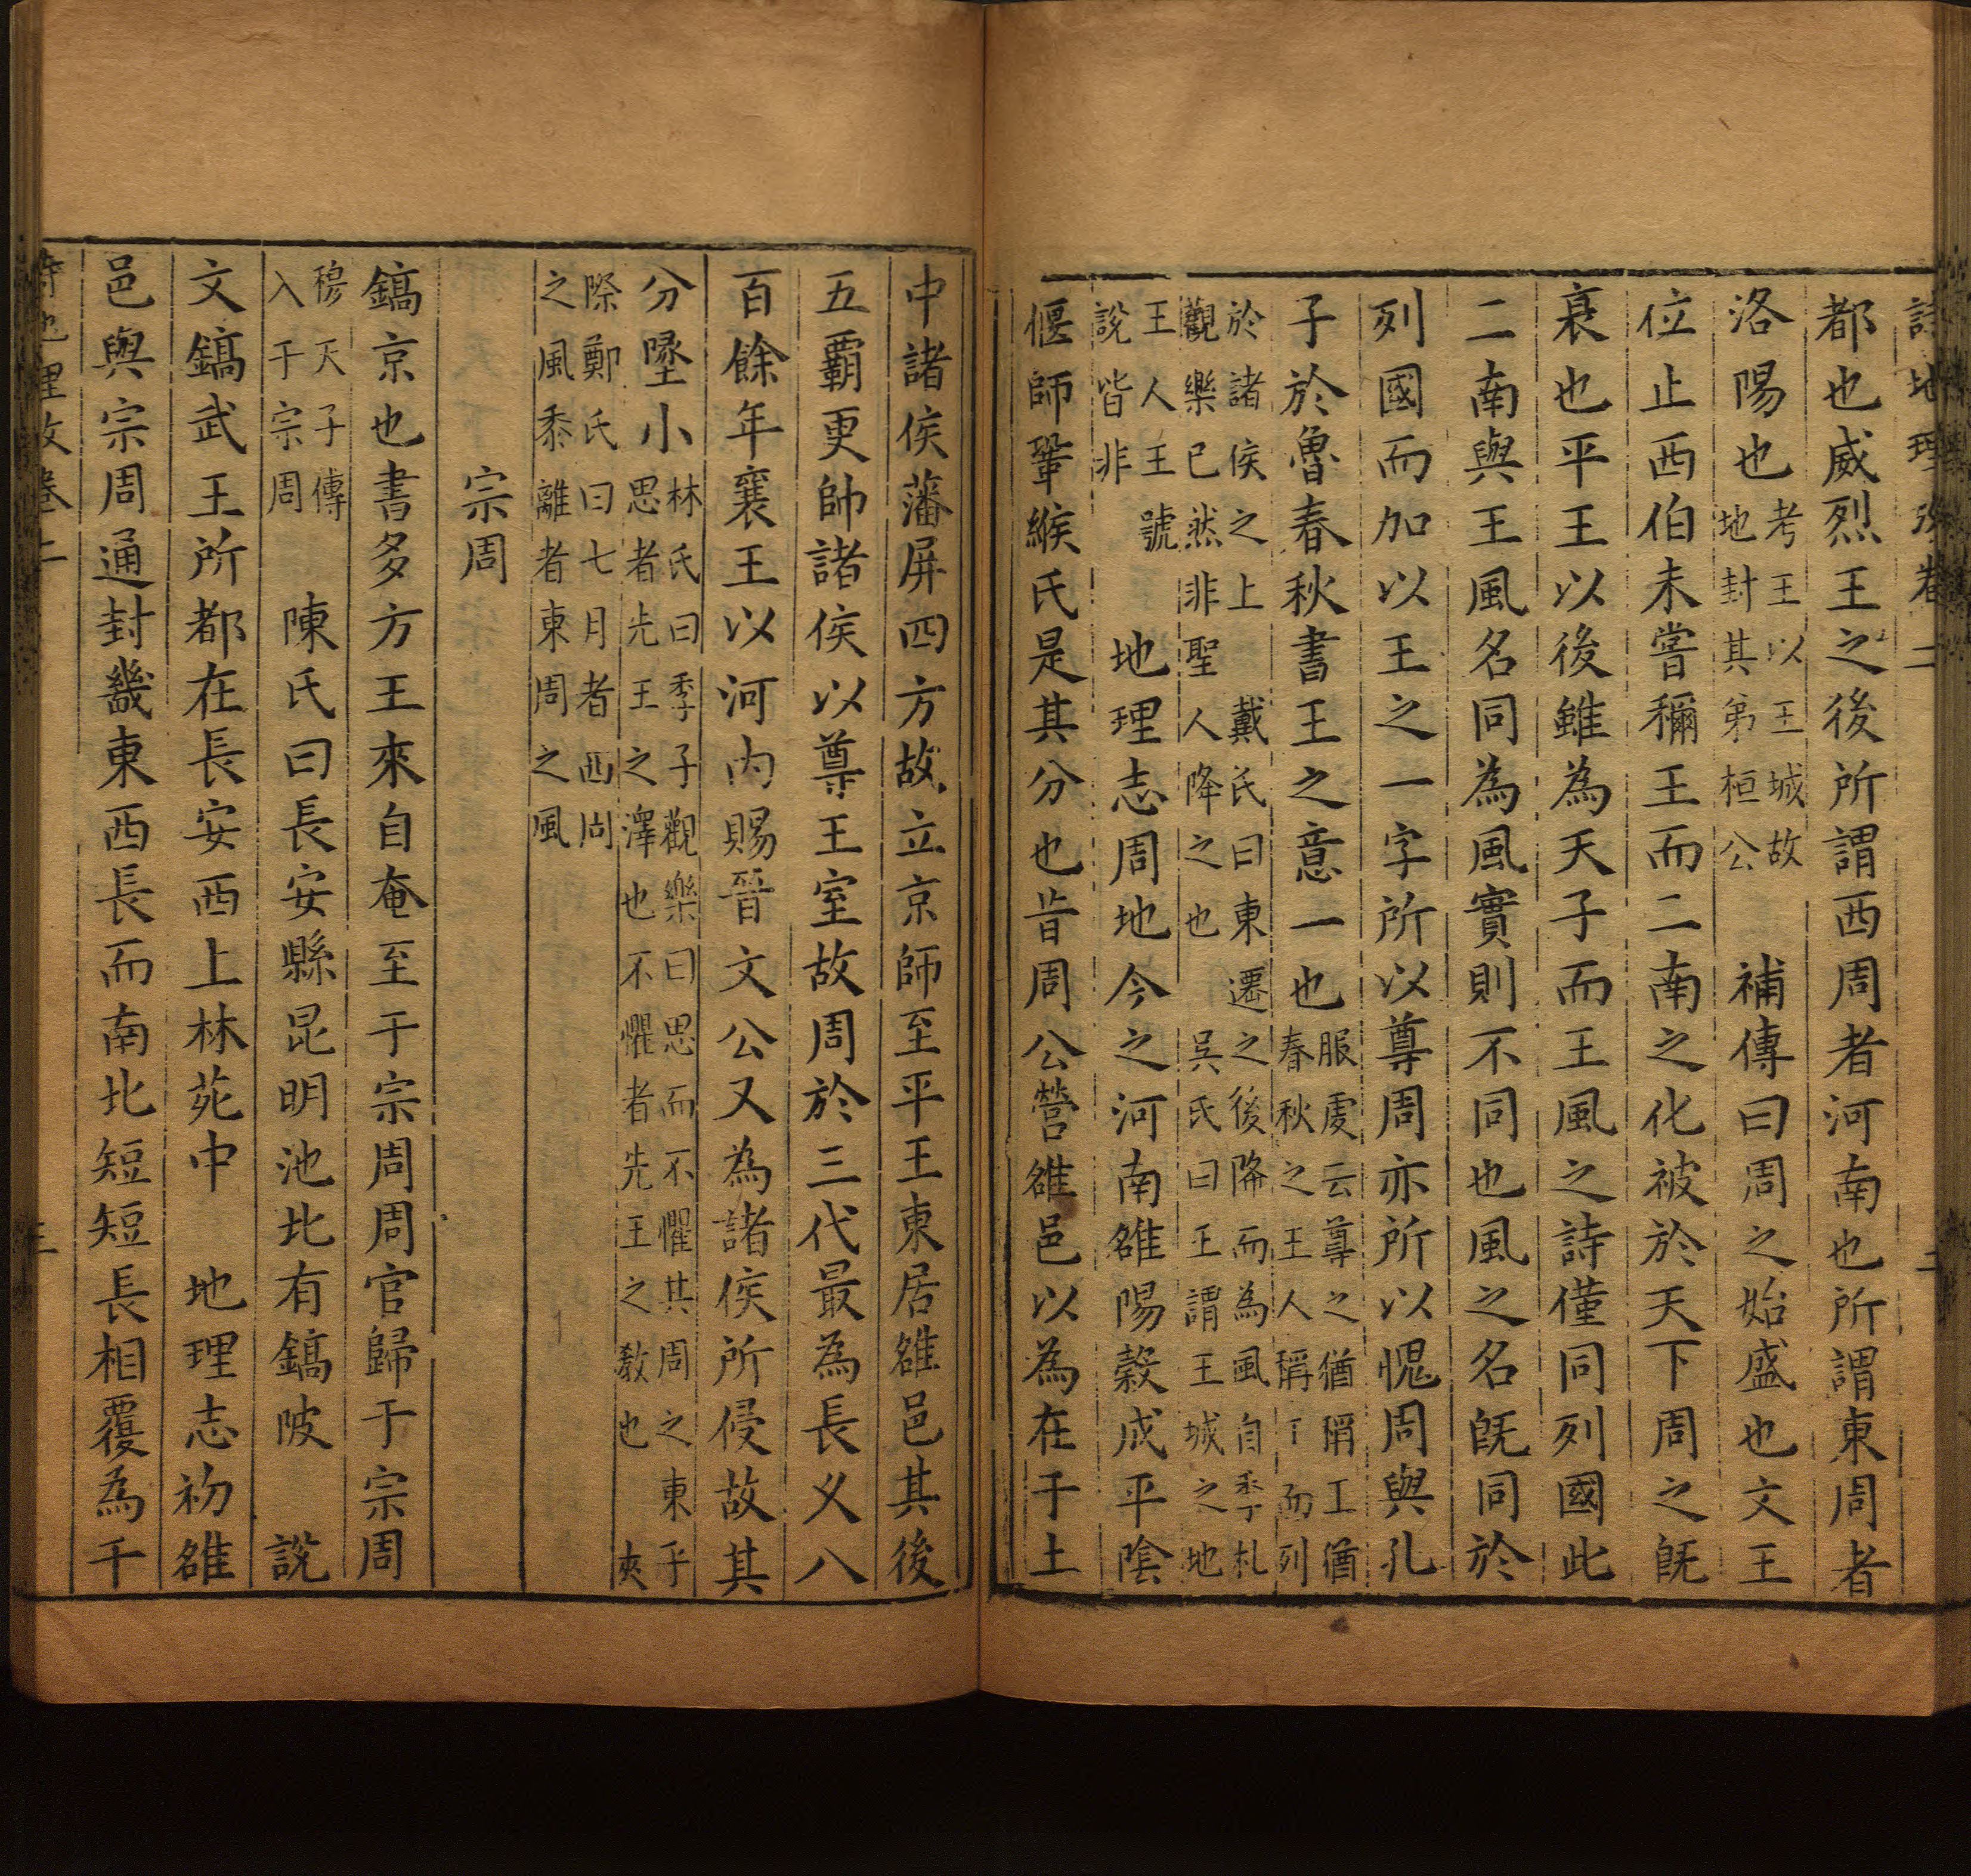 詩地理攷卷二 二
都也威烈王之後所謂西周者河南也所謂東周者
洛陽也考王以王城故地封其弟桓公 補傳曰周之始盛也文王
位止西伯未嘗稱王而二南之化被於天下周之旣
衰也平王以後雖為天子而王風之詩僅同列國此
二南與王風名同為風實則不同也風之名旣同於
列國而加以王之一字所以尊周亦所以愧周與孔
子於魯春秋書王之意一也服虔云尊之猶稱王猶春秋之王人稱王而列
於諸侯之上 戴氏曰東遷之後降而為風自季札觀樂已然非聖人降之也 吳氏曰王謂王城之地
王人王號說皆非 地理志周地今之河南雒陽榖成平隂
偃師鞏緱氏是其分也昔周公營雒邑以為在于土
中諸侯藩屏四方故立京師至平王東居雒邑其後
五覇更帥諸侯以尊王室故周於三代最為長乆八
百餘年襄王以河内賜晉文公又為諸侯所侵故其
分墬小林氏曰季子觀樂曰思而不懼其周之東乎思者先王之澤也不懼者先王之敎也 夾
際鄭氏曰七月者西周之風黍離者東周之風
宗周
鎬京也書多方王來自奄至于宗周周官歸于宗周
穆天子傳入于宗周 陳氏曰長安縣昆明池北有鎬陂 說
文鎬武王所都在長安西上林苑中 地理志初雒
邑與宗周通封畿東西長而南北短短長相覆為千
詩地理攷卷二 三